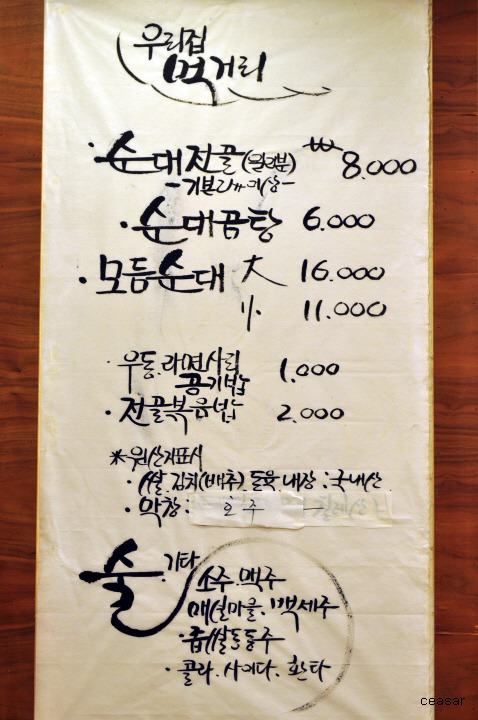 우리집
먹거리
· 순대전골(일인분) ₩ 8.000
-기본2人이상-
· 순대곰탕 6.000
· 모듬순대 大 16.000
小 11.000
· 우동.라면사리
공기밥 1.000
· 전골볶음밥 2.000
*원산지표시
· 쌀.김치(배추).돈육.내장:국내산
· 막창: 호주
술.기타
소주.맥주
매실마을.백세주
· 좁쌀동동주
· 콜라.사이다.환타
ceasar